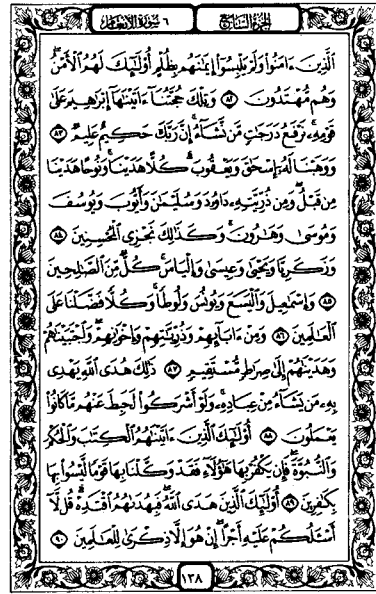 الجزء السابع
٦ سورة الأنعام
الَّذِينَ ءَامَنُوا۟ وَلَمْ يَلْبِسُوٓا۟ إِيمَـٰنَهُم بِظُلْمٍ أُو۟لَـٰٓئِكَ لَهُمُ ٱلْأَمْنُ
وَهُم مُّهْتَدُونَ ٨٢ وَتِلْكَ حُجَّتُنَآ ءَاتَيْنَـٰهَآ إِبْرَٰهِيمَ عَلَىٰ
قَوْمِهِۦ نَرْفَعُ دَرَجَـٰتٍ مَّن نَّشَآءُ إِنَّ رَبَّكَ حَكِيمٌ عَلِيمٌ ٨٣
وَوَهَبْنَا لَهُۥٓ إِسْحَـٰقَ وَيَعْقُوبَ كُلًّا هَدَيْنَا وَنُوحًا هَدَيْنَا
مِن قَبْلُ وَمِن ذُرِّيَّتِهِۦ دَاوُۥدَ وَسُلَيْمَـٰنَ وَأَيُّوبَ وَيُوسُفَ
وَمُوسَىٰ وَهَـٰرُونَ وَكَذَٰلِكَ نَجْزِى ٱلْمُحْسِنِينَ ٨٤
وَزَكَرِيَّا وَيَحْيَىٰ وَعِيسَىٰ وَإِلْيَاسَ كُلٌّ مِّنَ ٱلصَّـٰلِحِينَ
٨٥ وَإِسْمَـٰعِيلَ وَٱلْيَسَعَ وَيُونُسَ وَلُوطًا وَكُلًّا فَضَّلْنَا عَلَى
ٱلْعَـٰلَمِينَ ٨٦ وَمِنْ ءَابَآئِهِمْ وَذُرِّيَّـٰتِهِمْ وَإِخْوَٰنِهِمْ وَٱجْتَبَيْنَـٰهُمْ
وَهَدَيْنَـٰهُمْ إِلَىٰ صِرَٰطٍ مُّسْتَقِيمٍ ٨٧ ذَٰلِكَ هُدَى ٱللَّهِ يَهْدِى
بِهِۦ مَن يَشَآءُ مِنْ عِبَادِهِۦ وَلَوْ أَشْرَكُوا۟ لَحَبِطَ عَنْهُم مَّا كَانُوا۟
يَعْمَلُونَ ٨٨ أُو۟لَـٰٓئِكَ ٱلَّذِينَ ءَاتَيْنَـٰهُمُ ٱلْكِتَـٰبَ وَٱلْحُكْمَ
وَٱلنُّبُوَّةَ فَإِن يَكْفُرْ بِهَا هَـٰٓؤُلَآءِ فَقَدْ وَكَّلْنَا بِهَا قَوْمًا لَّيْسُوا۟ بِهَا
بِكَـٰفِرِينَ ٨٩ أُو۟لَـٰٓئِكَ ٱلَّذِينَ هَدَى ٱللَّهُ فَبِهُدَىٰهُمُ ٱقْتَدِهْ قُل لَّآ
أَسْـَٔلُكُمْ عَلَيْهِ أَجْرًا إِنْ هُوَ إِلَّا ذِكْرَىٰ لِلْعَـٰلَمِينَ ٩٠
١٣٨